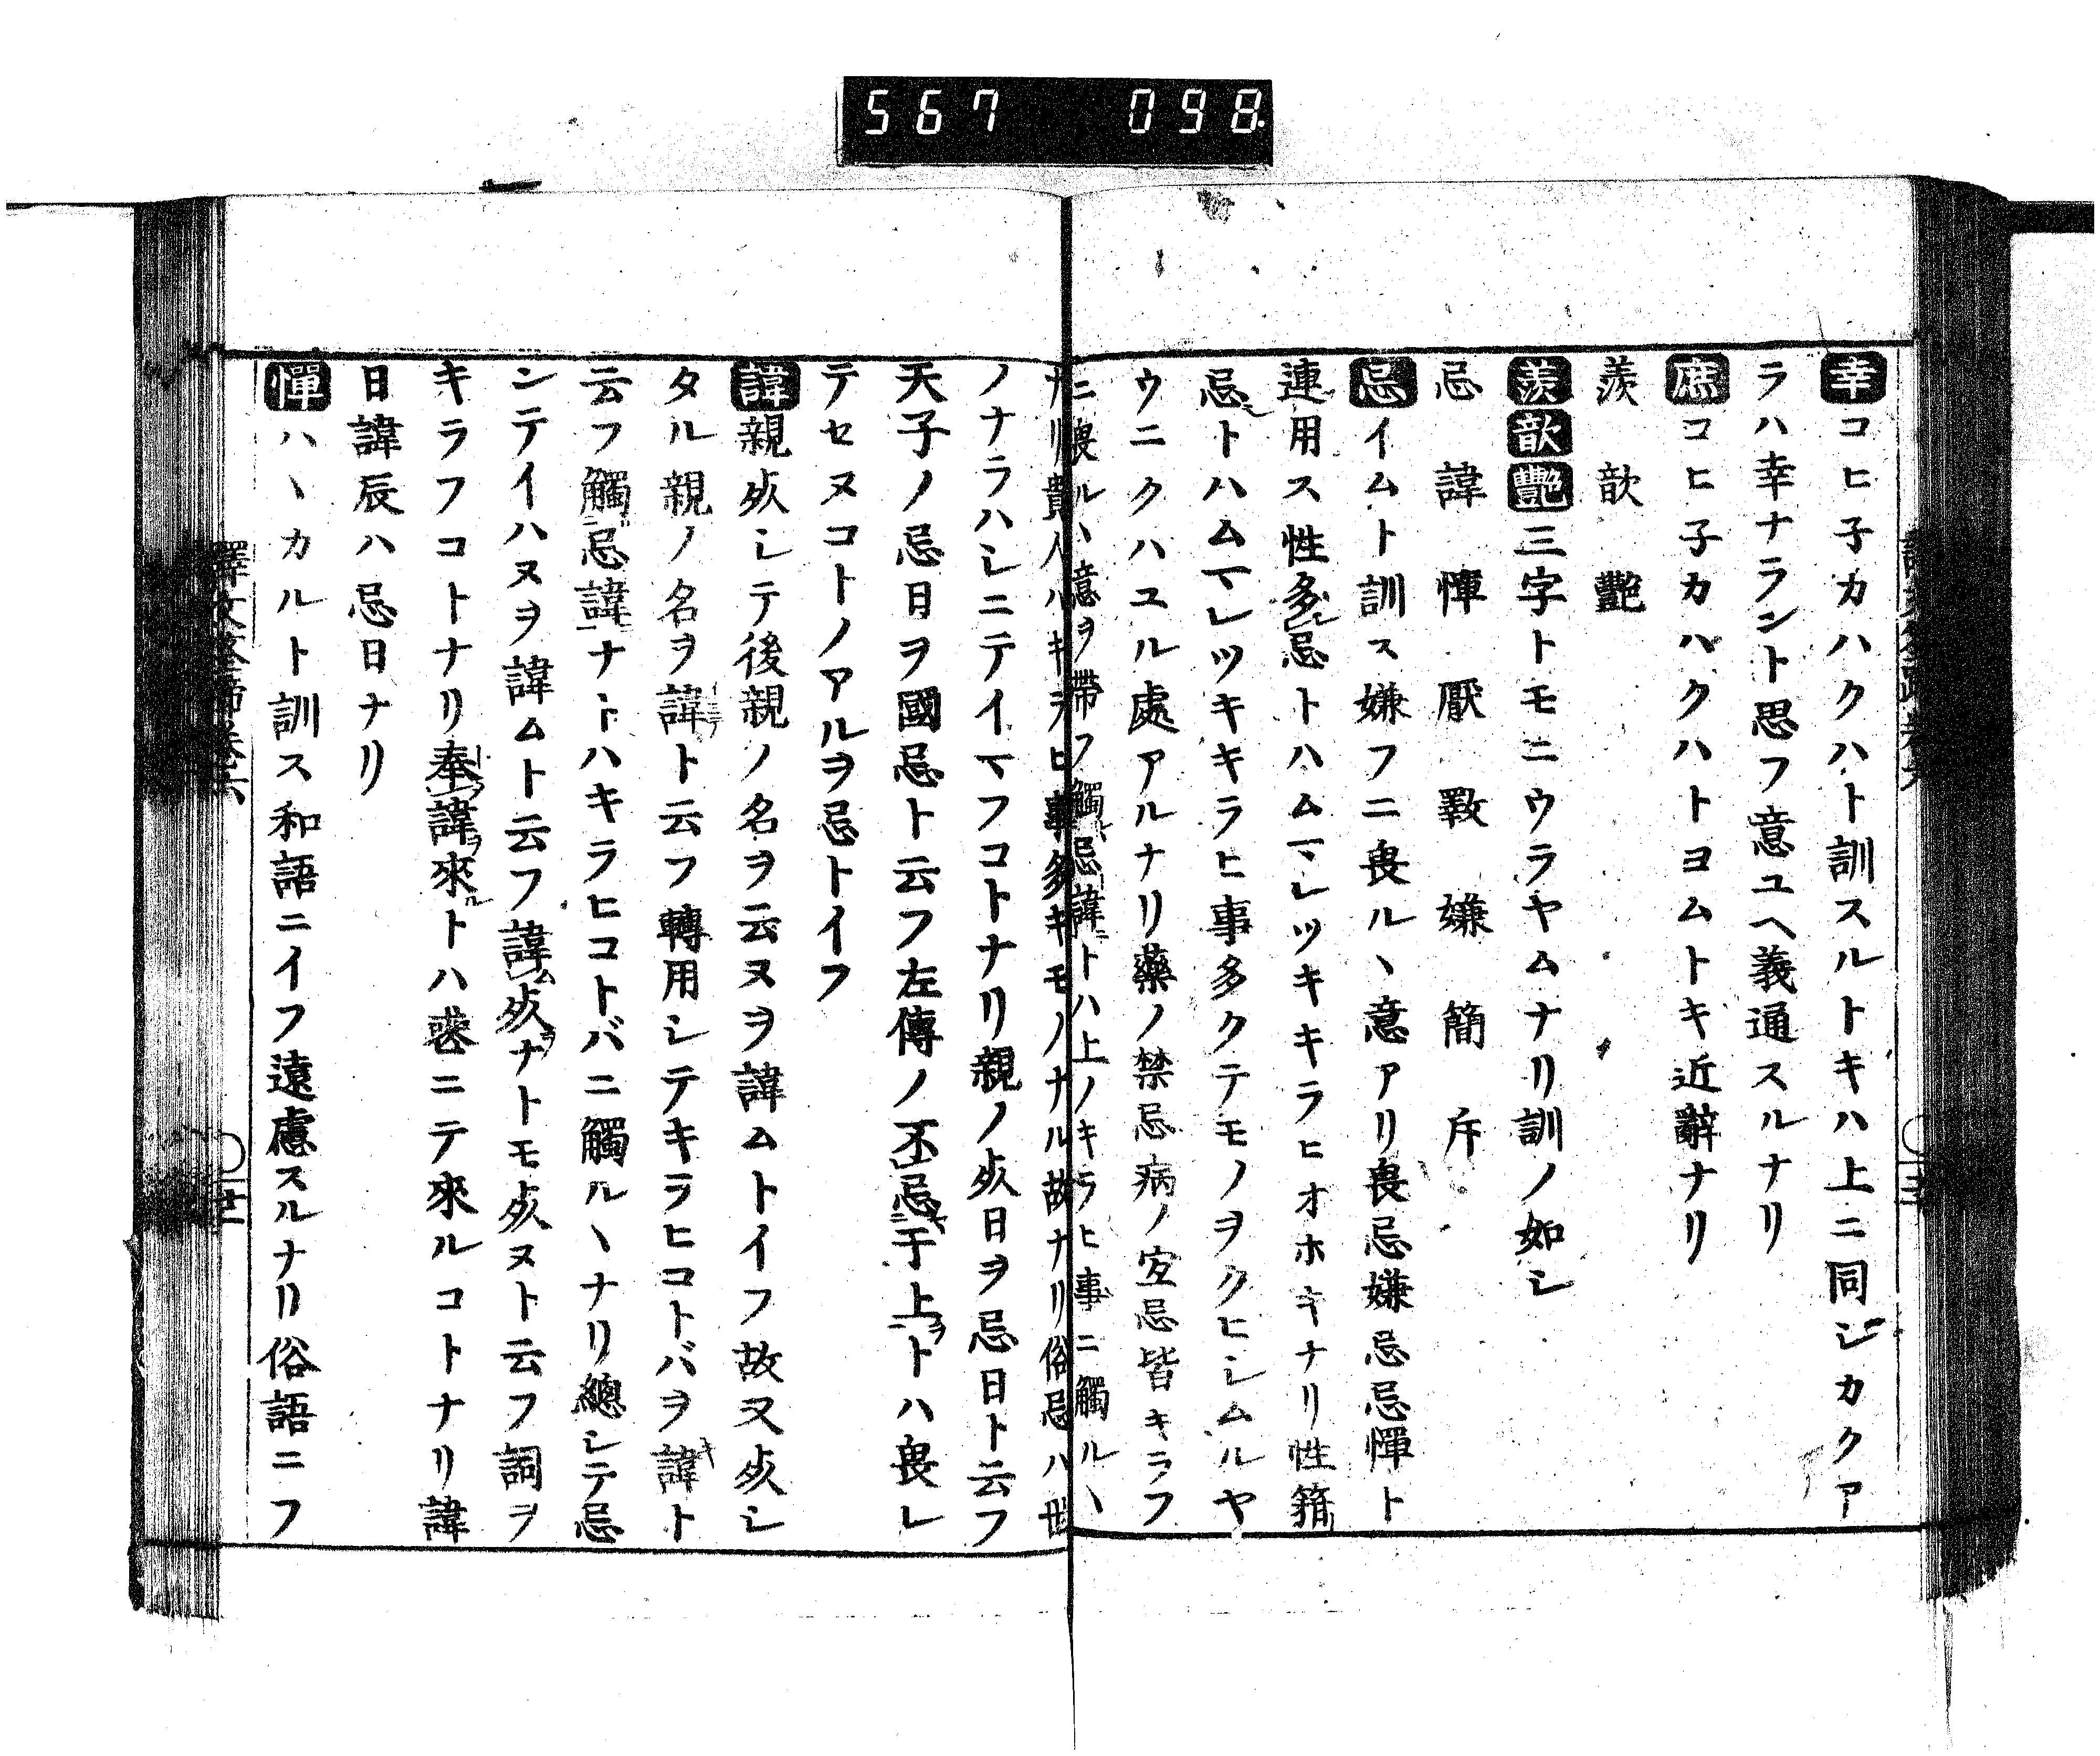 567 098
幸コヒ子カハクハト訓スルトキハ上ニ同シカクア
ラハ幸ナラント思フ意ユヘ義通スルナリ
庶コヒ子カハクハトヨムトキ近辭ナリ
羨 歆 艷
羨歆艷三字トモニウラヤムナリ訓ノ如シ
忌 諱 憚 厭 斁 嫌 簡 斥
忌イムト訓ス嫌フニ畏ルヽ意アリ畏忌嫌忌忌憚ト
連用ス性多忌トハムマレツキキラヒオホキナリ性猜
忌トハムマレツキキラヒ事多クテモノヲクヒシムルヤ
ウニクハユル處アルナリ藥ノ禁忌病ノ宜忌皆キラフ
ニ畏ルヽ意ヲ帶フ觸忌諱トハ上ノキラヒ事ニ觸ルヽ
ナリ貴人ハキラヒ事多キモノナル故ナリ俗忌ハ世
ノナラハシニテイマフコトナリ親ノ死日ヲ忌日ト云フ
天子ノ忌日ヲ國忌ト云フ左傳ノ不忌于上トハ畏レ
テセヌコトノアルヲ忌トイフ
諱親死シテ後親ノ名ヲ云ヌヲ諱ムトイフ故又死シ
タル親ノ名ヲ諱ト云フ轉用シテキラヒコトバヲ諱ト
云フ觸忌諱ナトハキラヒコトバニ觸ルヽナリ總シテ忌
ンテイハヌヲ諱ムト云フ諱死ナトモ死ヌト云フ詞ヲ
キラフコトナリ奉諱來トハ忌ニテ來ルコトナリ諱
日諱辰ハ忌日ナリ
憚ハヽカルト訓ス和語ニイフ遠慮スルナリ俗語ニフ
譯文筌蹄卷六